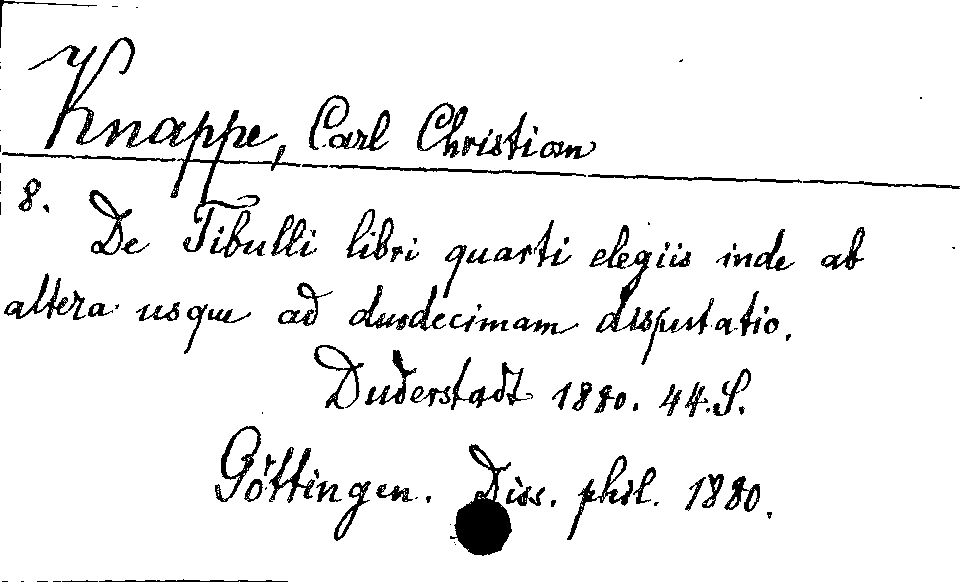 Knappe, Carl Christian
8.
De Tibulli libri quarti elegiis inde ab
altera usque ad duodecimam disputatio.
Duderstadt 1880. 44.S.
Göttingen. Diss. phil. 1880.